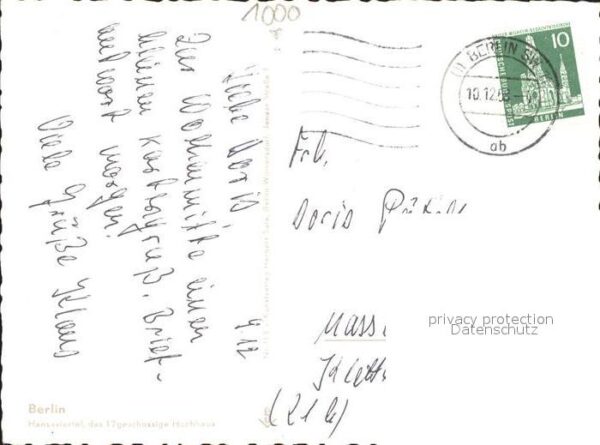 1000
Liebe Doris
9.12
Zur Wochenmitte einen
kleinen Kartengruß. Brief-
antwort morgen!
Viele Grüße Klaus
10
BERLIN
(1) BERLIN SW
10.12.
ab
Frl.
Doris
privacy protection
Datenschutz
(21b)
Berlin
Hansaviertel, das 17geschossige Hochhaus